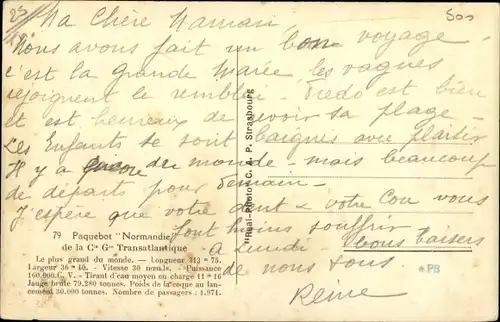 Ma Chère Maman
500
Nous avons fait un bon voyage
c'est la grande marée les vagues
rejoignent le remblai. est bien
et est heureux de revoir sa plage -
Les Enfants se sont baignés avec plaisir
Il y a encore du monde - mais beaucoup
de départs pour demain -
J'espère que votre dent & votre Cou vous
font moins souffrir
à Lundi bons baisers
de nous tous
Reine
79 Paquebot "Normandie"
de la Cie Gle Transatlantique
Le plus grand du monde. — Longueur 313 m 75.
Largeur 36 m 40. - Vitesse 30 nœuds. - Puissance
160.000 C. V. - Tirant d'eau moyen en charge 11 m 16
Jauge brute 79.280 tonnes. Poids de la coque au lan-
cement 30.000 tonnes. Nombre de passagers : 1.971.
"Real-Photo" C. A. P. Strasbourg
*PB